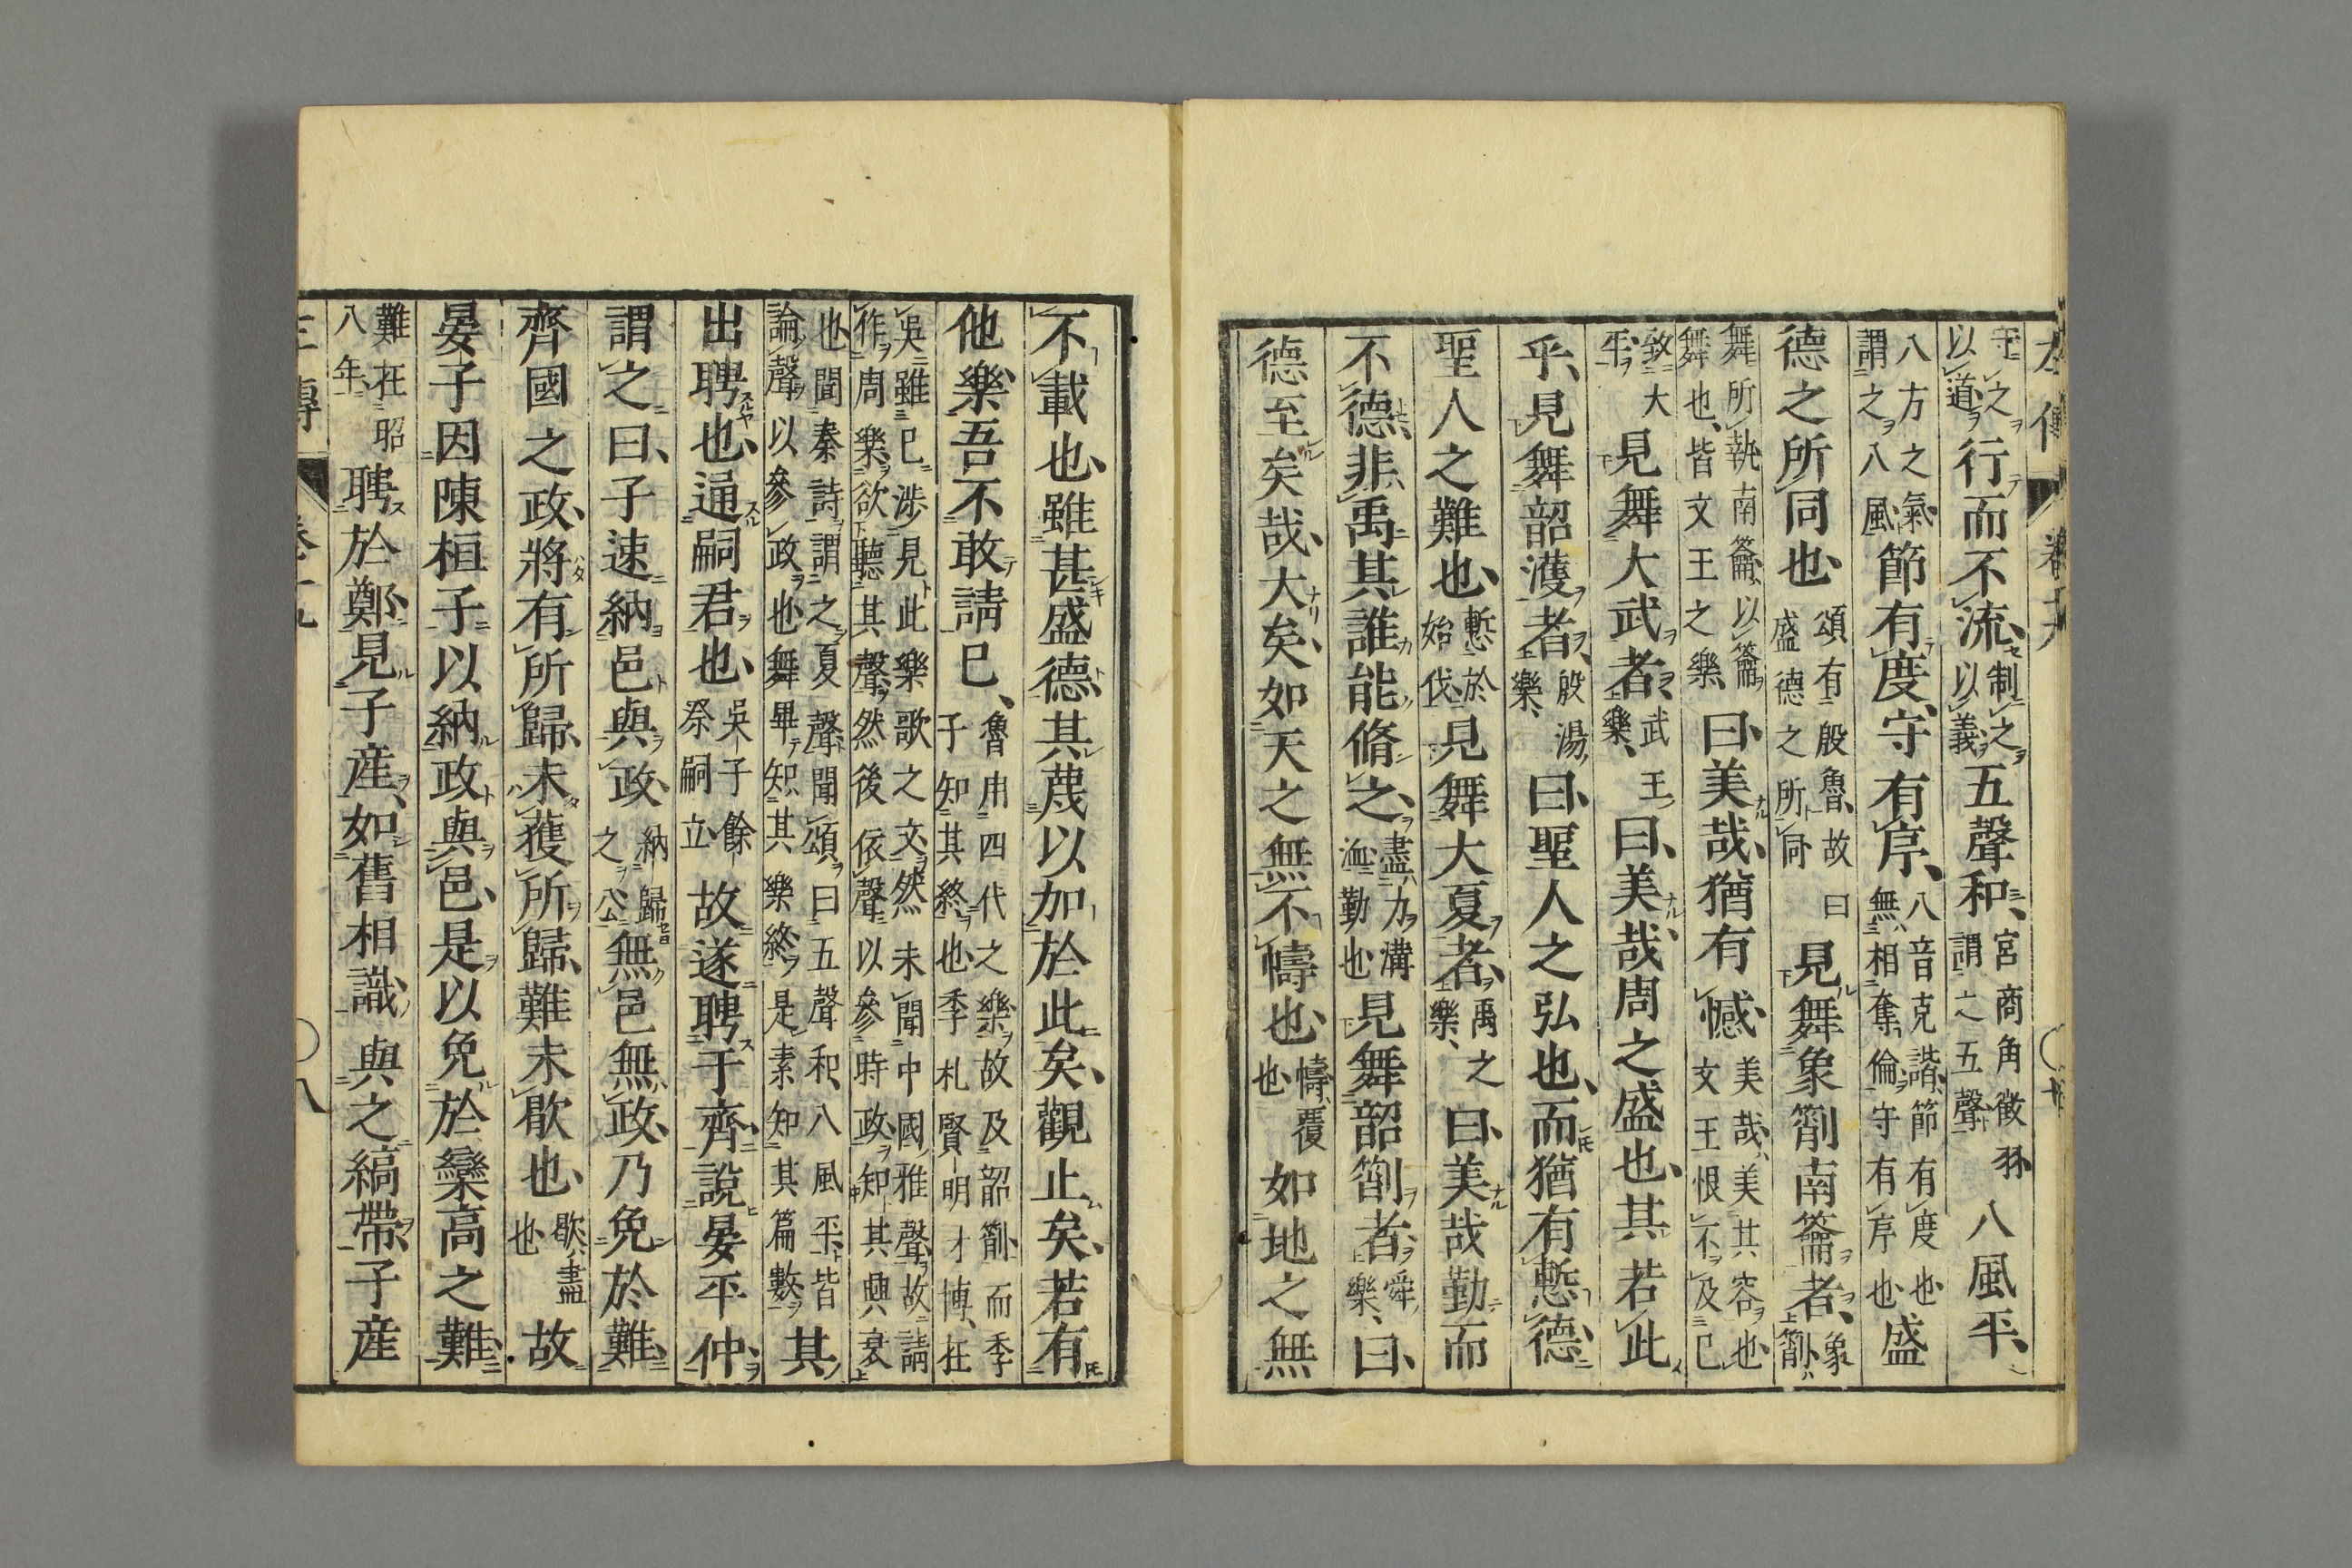 守之以道行而不流制之以義五聲和、宮商角徵羽謂之五聲八風平、
八方之氣謂之八風節有度、守有序、八音克諧、節有度也無相奪倫守有序也盛
德之所同也、頌有殷魯、故曰盛德之所同見舞象箾南籥者、象箾
舞所執南籥以籥舞也、皆文王之樂曰、美哉、猶有憾、美哉、美其容也文王恨不及已
致大平見舞大武者、武王樂、曰、美哉、周之盛也、其若此
乎、見舞韶濩者、殷湯樂、曰、聖人之弘也、而猶有慙德、
聖人之難也、慙於始伐見舞大夏者、禹之樂、曰、美哉勤而
不德、非禹、其誰能脩之、盡力溝洫勤也見舞韶箾者、舜樂、曰、
德至矣哉、大矣、如天之無不幬也、幬覆也如地之無
不載也、雖甚盛德、其蔑以加於此矣、觀止矣、若有
他樂、吾不敢請已、魯用四代之樂、故及韶箾而季子知其終也季札賢明才博、在
吳雖已涉見此樂歌之文、然未聞中國雅聲、故請作周樂、欲聽其聲、然後依聲以參時政、知其興衰
也聞秦詩謂之夏聲聞頌曰五聲和、八風平、皆論聲以參政也舞畢知其樂終是素知其篇數其
出聘也、通嗣君也、吳子餘祭嗣立故遂聘于齊、說晏平仲、
謂之曰、子速納邑與政、納歸之公無邑無政、乃免於難、
齊國之政、將有所歸、未獲所歸、難未歇也、歇盡也故
晏子因陳桓子以納政與邑、是以免於欒高之難、
難在昭八年聘於鄭、見子產、如舊相識、與之縞帶、子產